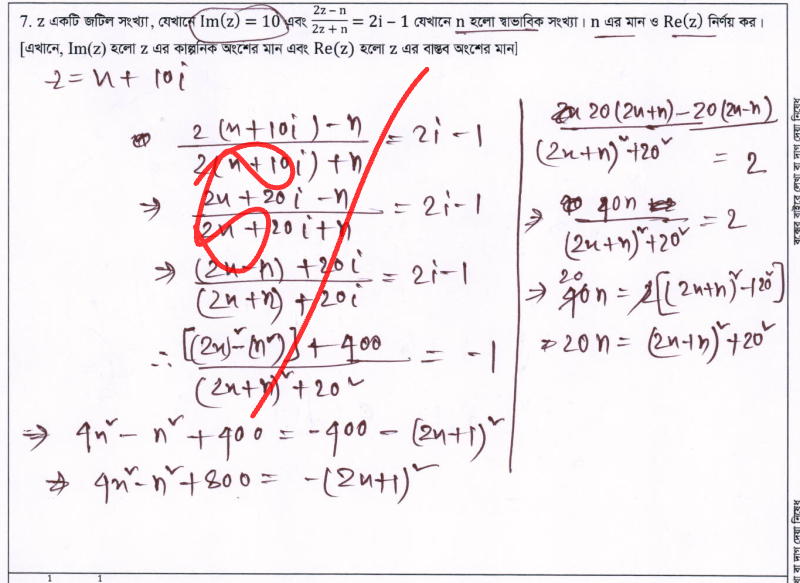 7. z একটি জটিল সংখ্যা, যেখানে Im(z) = 10 এবং (2z − n)/(2z + n) = 2i − 1 যেখানে n হলো স্বাভাবিক সংখ্যা। n এর মান ও Re(z) নির্ণয় কর।
[এখানে, Im(z) হলো z এর কাল্পনিক অংশের মান এবং Re(z) হলো z এর বাস্তব অংশের মান]
z = x + 10i
(2(x+10i) − n)/(2(x+10i) + n) = 2i − 1
⇒ (2x + 20i − n)/(2x + 20i + n) = 2i − 1
⇒ ((2x − n) + 20i)/((2x + n) + 20i) = 2i − 1
∴ ([(2x)² − (n²)] + 400)/((2x + n)² + 20²) = −1
⇒ 4x² − n² + 400 = −400 − (2x+1)²
⇒ 4x² − n² + 800 = −(2x+1)²
(20(2x+n) − 20(2x−n))/((2x+n)² + 20²) = 2
⇒ 40n/((2x+n)² + 20²) = 2
⇒ 20 40n = 2[(2x+n)² + 20²]
⇒ 20n = (2x+n)² + 20²
বক্সের বাইরে লেখা বা দাগ দেয়া নিষেধ
বা দাগ দেয়া নিষেধ
1 1